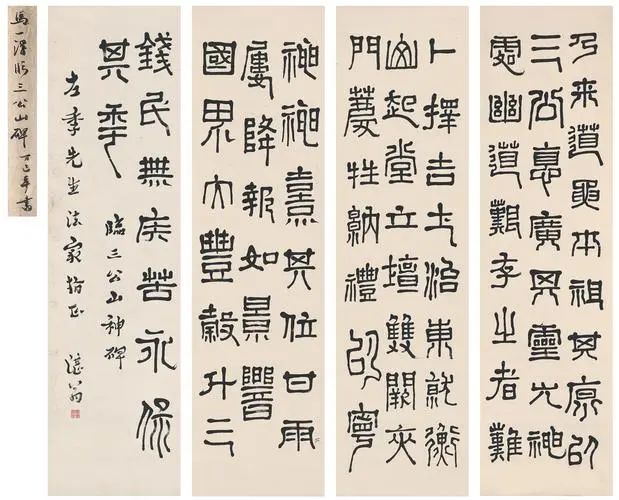 乃來道要本祖其原以
三公悳廣其靈尤神
處幽道艱存之者難
卜擇吉土治東就衡
山起堂立壇雙闕夾
門薦牲納禮以寧
神神熹其位甘雨
屢降報如景響
國界大豐穀斗三
錢民無疾苦永保
其年
臨三公山神碑
左季先生法家指正 湛翁
馬一浮臨三公山碑 丁巳年書